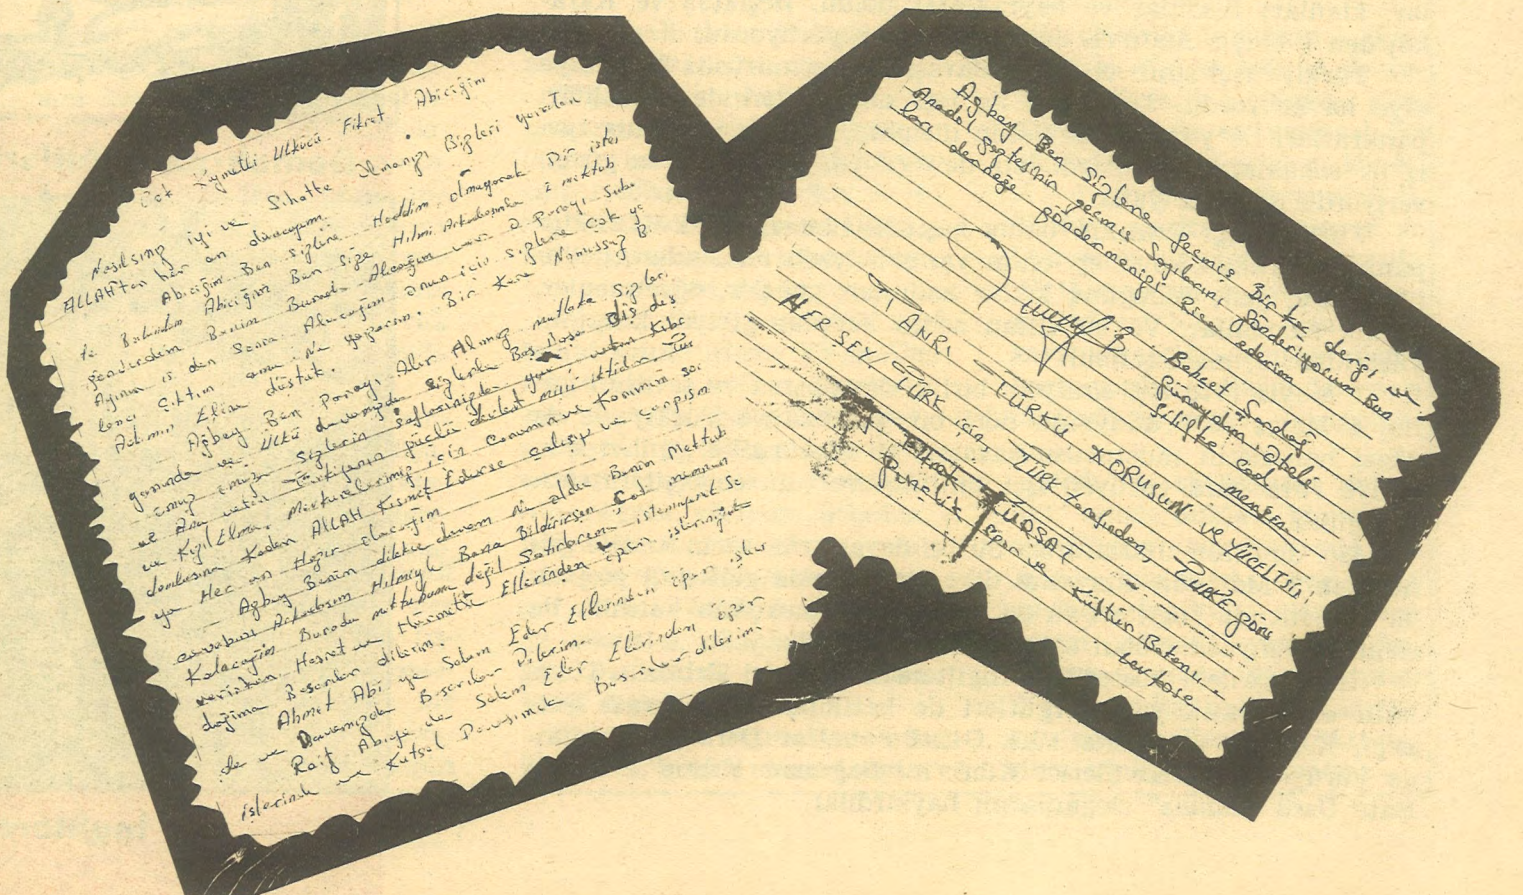 Çok Kıymetli Ülkücü Fikret Abiciğim
Nasılsınız iyi ve Sıhatte Olmanızı Bizleri yaratan
ALLAH'tan her an duacıyım.
Abiciğim Ben sizlere Haddim olmayarak Bir istek
te Bulundum Abiciğim Ben size Hilmi Arkadaşımla 2 mektub
gönderdim Benim Burada Alacağım var o parayı Şubat
Ayının is den Sonra Alacağım onun için sizlere Çok ya
lancı Çıktım ama Ne yaparsın. Bir Kara Namussuz Bi
Adımın Eline düştük.
Ağbey Ben Parayı Alır Almaz mutlaka Sizlerin
yanında ve Ülkü davamızda sizlerle Baş Başa diş dişe
omuz omuza sizlerin saflarınızda yüce vatan
ve Ana vatan Türkiyenin güçlü devlet milli iktidar. Tür
ve Kızıl Elma. Mefkurelerimiz için canımın ve Kanımın son
damlasına Kadar ALLAH Kısmet Ederse çalışıp ve çarpışm
ya Her an Hazır olacağım
Ağbey Benim dikkce davam Ne oldu Benim Mektub
cevabını Arkadaşım Hilmiyle Bana Bildirirsen Çok memnun
Kalacağım Burada mektubuma değil Satırlarıma istemiyerek So
verirken Hasret ve Hürmetle Ellerinden öper işlerinizde
dağıma Başarılar dilerim.
Ahmet Abi ya Selam Eder Ellerinden öper işler
de ve Davamızda Başarılar Dilerim.
Raif Abiye de Selam Eder Elerinden öper
işlerinde ve Kutsal Davasımda Başarılar dilerim
Ağbey Ben sizlere geçmiş Bir tek dergi ve
Anadol gaztesinin geçmiş Sayılarını gönderiyorum Bun
ları derneğe göndermenizi Rica ederim
Behcet Sarıdağ
Günaydın Oteli
Silifke Cad
mersin
TANRI TÜRKÜ KORUSUN ve YÜCELTSİN!
HERŞEY, TÜRK için, TÜRK tarafından, TÜRKE göre
KÜRŞAT
Gençlik Spor ve Kültür Bakanı